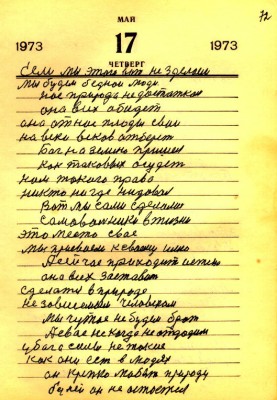 72
МАЙ
1973 17 1973
ЧЕТВЕРГ
Если мы этого не зделаем
мы будем бедной люди
нас природа недостатком
она всех обидет
она от нас плоды свои
на веки веков отберет
Бог на землю пришел
Как таковых осудет
нам такого права
никто нигде ни давал
Вот мы сами сделались
самовольники в жизни
это место свое
мы
А сейчас приходит истина
она всех заставит
сделать в природе
независимым человеком
мы чужое не будем брать
А свое некогда не отдадим
у бога силы не такие
Как они есть в людях
он крепко любит природу
он не остается